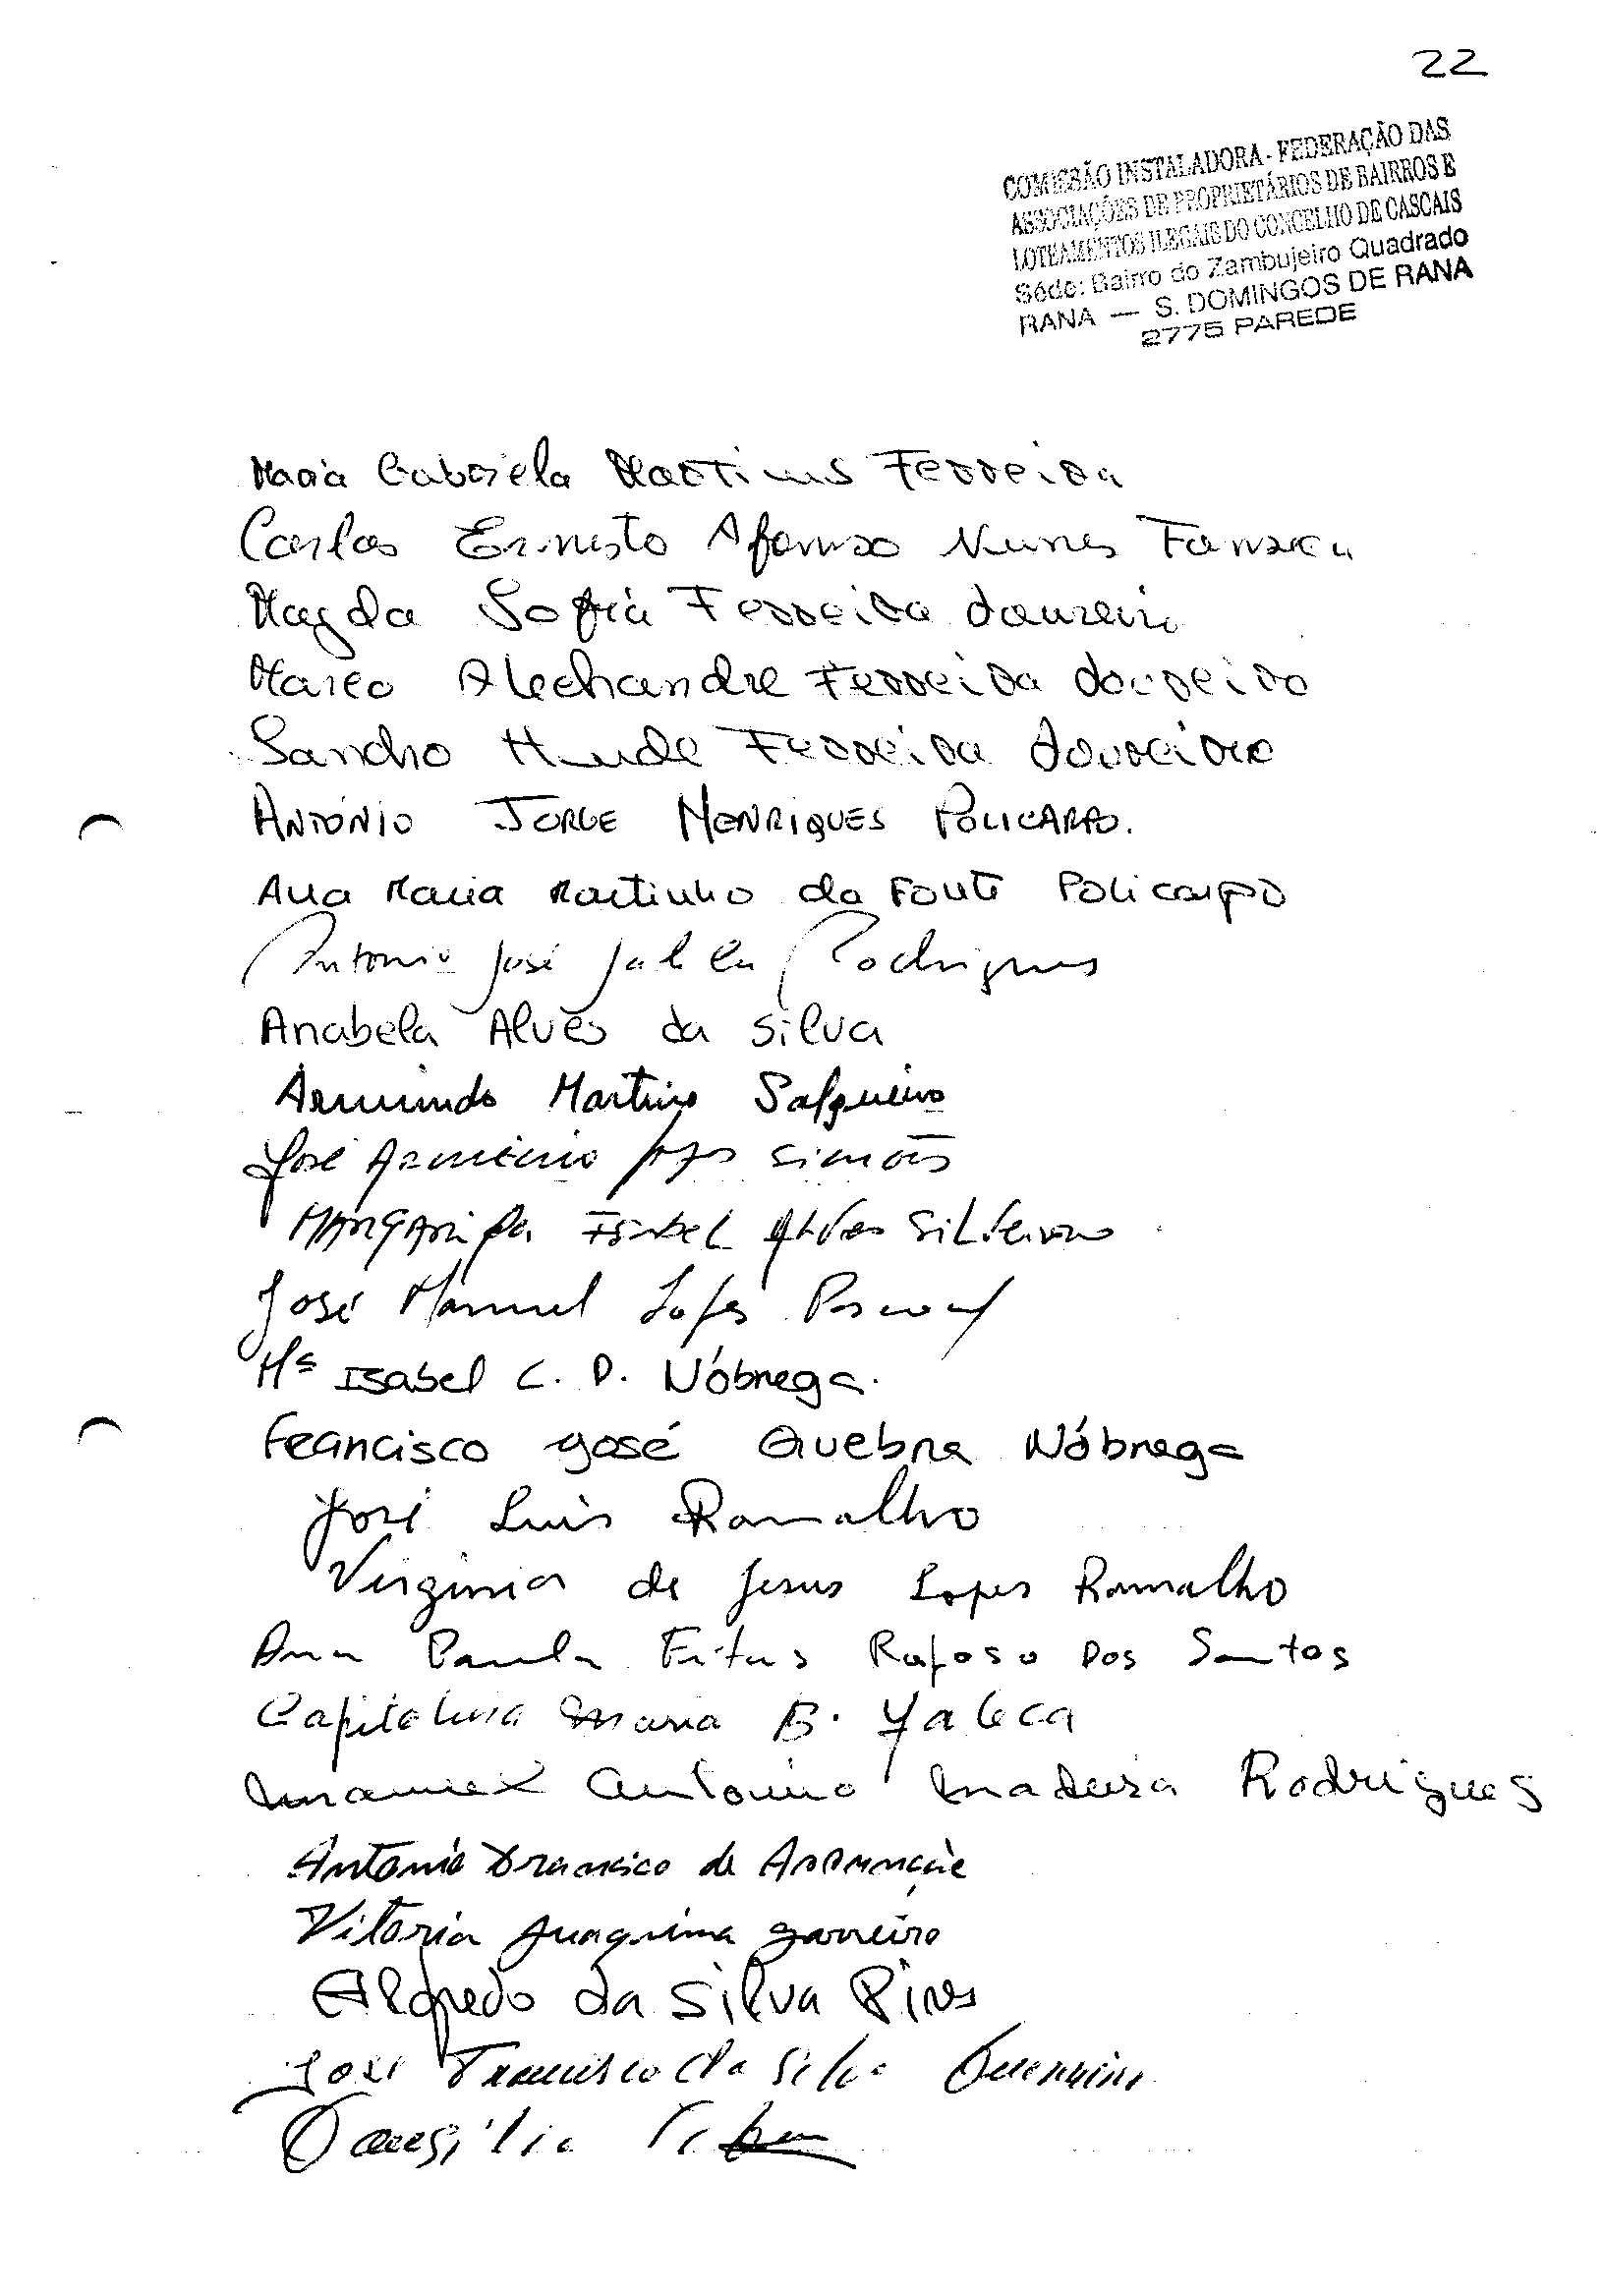 22
COMISSÃO INSTALADORA - FEDERAÇÃO DAS
ASSOCIAÇÕES DE PROPRIETÁRIOS DE BAIRROS E
LOTEAMENTOS ILEGAIS DO CONCELHO DE CASCAIS
Séde: Bairro do Zambujeiro Quadrado
RANA — S. DOMINGOS DE RANA
2775 PAREDE
Maria Gabriela Martins Ferreira
Carlos Ernesto Afonso Nunes Fonseca
Magda Sofia Ferreira Loureiro
Marco Alechandre Ferreira Loureiro
Sancho Ferreira Loureiro
ANTÓNIO JORGE HENRIQUES POLICARPO.
Ana Maria Martinho da Fonte Policarpo
Antonio José Rodrigues
Anabela Alves da Silva
Armindo Martins Salgueiro
José Armenio Simões
MARGARIDA ISABEL Alves
José Manuel Lopes Pascoal
Mª Isabel C. D. Nóbrega.
Francisco José Quebra Nóbrega
José Luis Ramalho
Virginia de Jesus Lopes Ramalho
Ana Paula Raposo Dos Santos
Capitolina Maria B.
Manuel Antonio Madeira Rodrigues
Antonio Francisco de
Vitoria Juaquina
Alfredo da Silva Pires
José Francisco da Silva